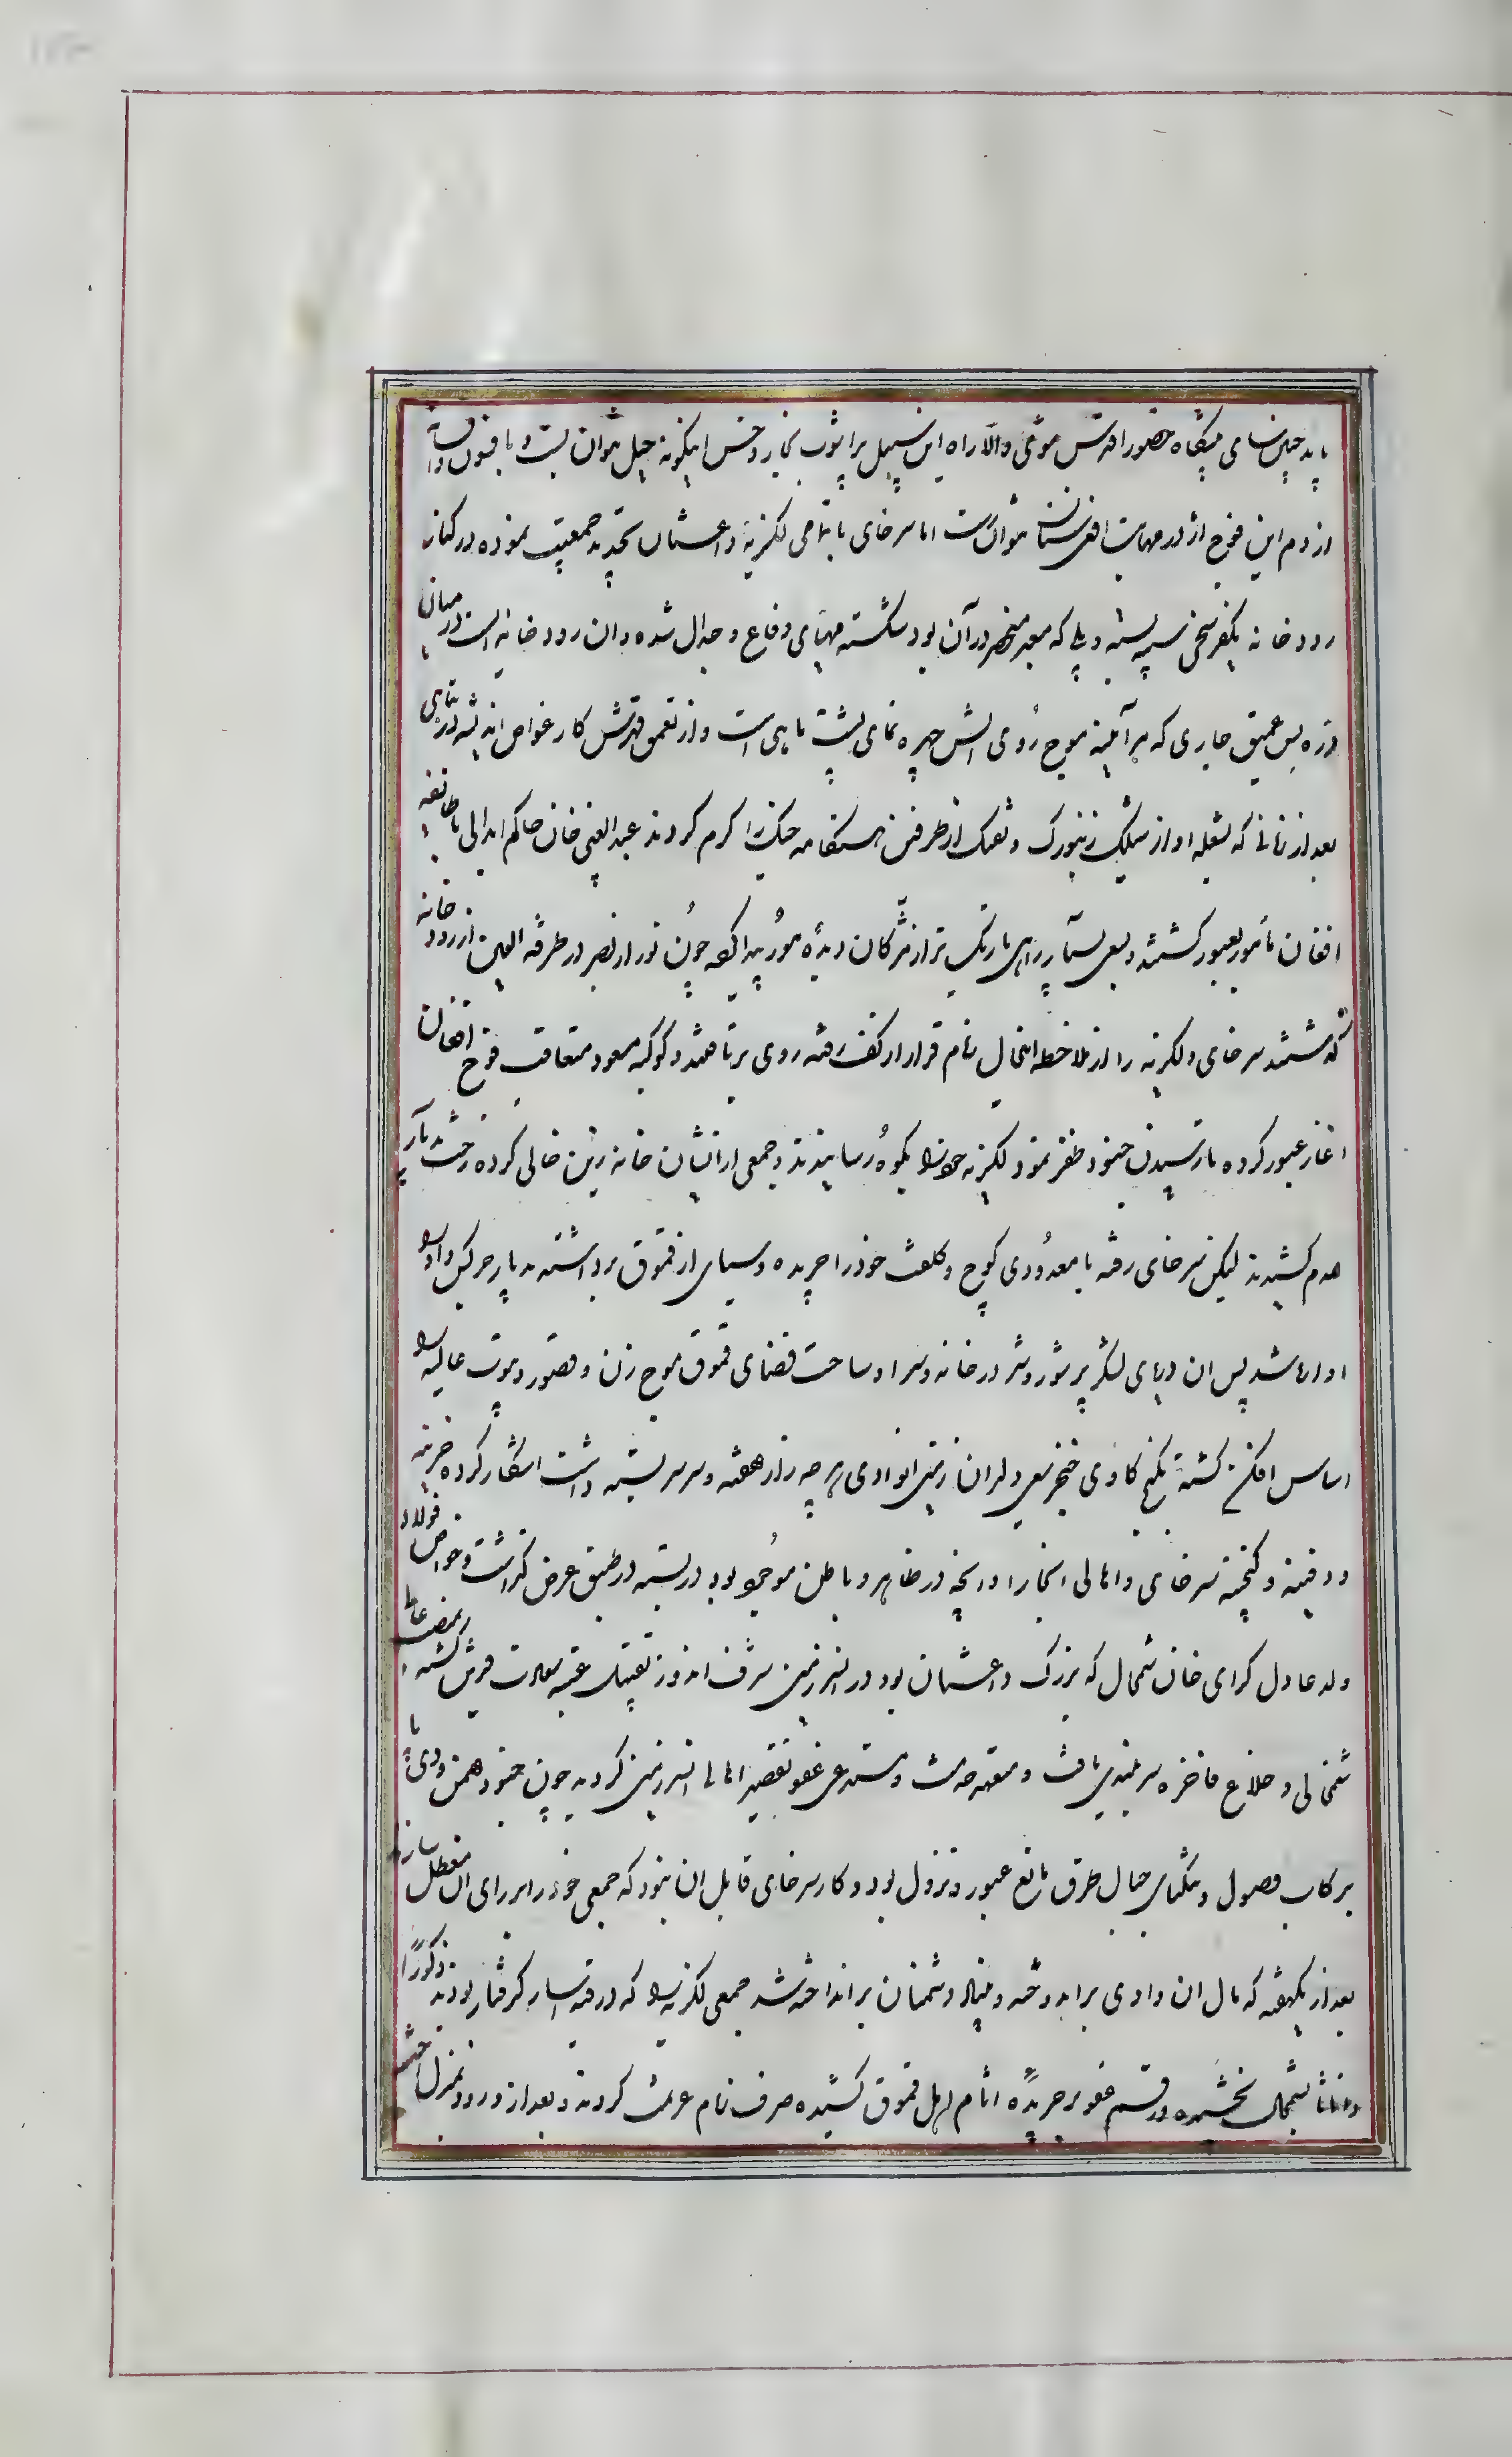 باید جبین‌سای پیشگاه حضور اقدس شوی والا راه این سیل پر آشوب بخار و خس اینگونه حیل نتوان بست و با فسون و افسانه
از دم این فوج اژدر مهابت افعی‌سنان نتوان رست اما سرخای با تمامی لکزیه داغستان تجدید جمعیت نموده در کنار
رودخانه یکفرسخی سیبه بسته و پلی که معبر منحصر در آن بود شکسته مهیای دفاع و جدال شده و ان رودخانه ایست در میان
دره بس عمیق جاری که هر آیینه موج روی ابش چهره نمای پشت ماهی است و از تعمق قعرش کار غواص اندیشه در تباهی
بعد از زمانی که بشعله اواز شلیک زنبورک و تفنک از طرفین هنکامه جنک را کرم کردند عبدالغنی خان حاکم ابدالی با طایفه
افغان مامور بعبور کشتند و بسعی بسیار راهی باریک تر از مژکان دیده مور پیدا کرده چون نور از بصر در طرفه العین از رودخانه
کذشتند سرخای و لکزیه را از ملاحظه اینحال زمام قرار از کف رفته روی برتافتند و کوکبه مسعود متعاقب فوج افغان
اغاز عبور کرده تا رسیدن جنود ظفر نمود لکزیه خود را بکوه رسانیدند و جمعی از ایشان خانه زین خالی کرده رخت بدیار
عدم کشیدند لیکن سرخای رفته با معدودی کوچ و کلفت خود را جریده و سبای از قموق برداشته بدیار چرکس و اوار
اواره شد پس ان دریای لشکر پر شور و شر در خانه و سرا و ساحت فضای قموق موج زن و قصور و بیوت عالیه را
اساس افکن کشته بکنج کاوی خنجر سعی دلیران زمین انوادی هر چه راز نهفته و سر سربسته داشت اشکار کرده خزینه
و دفینه و کنجینه سرخای و اهالی انجا را و انچه در ظاهر و باطن موجود بود دربسته در طبق عرض کذاشت و خاص فولاد
ولد عادل کرای خان شمخال که بزرک داغستان بود در انسرزمین شرف اندوز تقبیل عتبه سعادت قرین کشته بمنصب
شمخالی و خلاع فاخره سربلندی یافت و متعهد خدمت و مستدعی عفو تقصیر اهالی انسرزمین کردید چون جنود بهمن و دی پا
برکاب وصول و تنکنای جبال طرق مانع عبور و نزول بود و کار سرخای قابل ان نبود که جمعی خود را برای ان معطل سازند
بعد از یکهفته که مال ان وادی براندوخته و بنیاد دشمنان برانداخته شد جمعی لکزیه را که در قید اسار کرفتار بودند ذکورا
و اناثا بشمخال بخشیده و رقم عفو بر جریده اثام اهل قموق کشیده صرف زمام عزیمت کردند و بعد از ورود بمنزل اختی